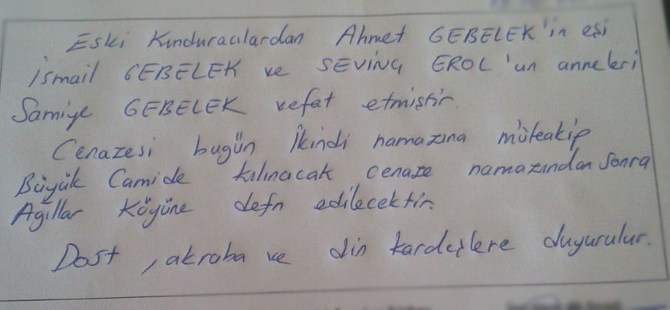 Eski Kunduracılardan Ahmet GEBELEK'in eşi
İsmail GEBELEK ve SEVİNÇ EROL'un anneleri
Samiye GEBELEK vefat etmiştir.
Cenazesi bugün İkindi namazına müteakip
Büyük Camide kılınacak cenaze namazından Sonra
Ağıllar Köyüne defn edilecektir.
Dost, akraba ve din kardeşlere duyurulur.